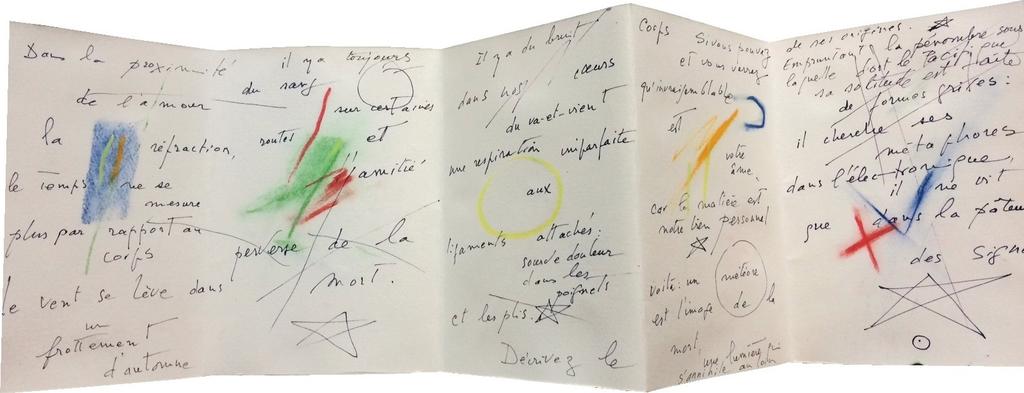 Dans la proximité
de l'amour
la réfraction,
le temps ne se
mesure
plus par rapport au
corps
le vent se lève dans
un
frottement
d'automne
il y a toujours
du sang sur certaines
routes et
l'amitié
perverse de la
mort.
Il y a du bruit
dans nos cœurs
du va-et-vient
une respiration imparfaite
aux
ligaments attachés :
sourde douleur
dans les
poignets
et les plis.
Décrivez le
corps si vous pouvez
et vous verrez
qu'invraisemblable
est
votre
âme,
car la matière est
notre bien personnel
voilà : un météore
est l'image de la
mort,
une lumière qui
s'annihile
de ses origines.
Empruntant la pénombre sous
laquelle dort le Pacifique
sa solitude est faite
de formes grises :
il cherche ses
métaphores
dans l'électronique,
il ne vit
que dans la pâteur
des signes